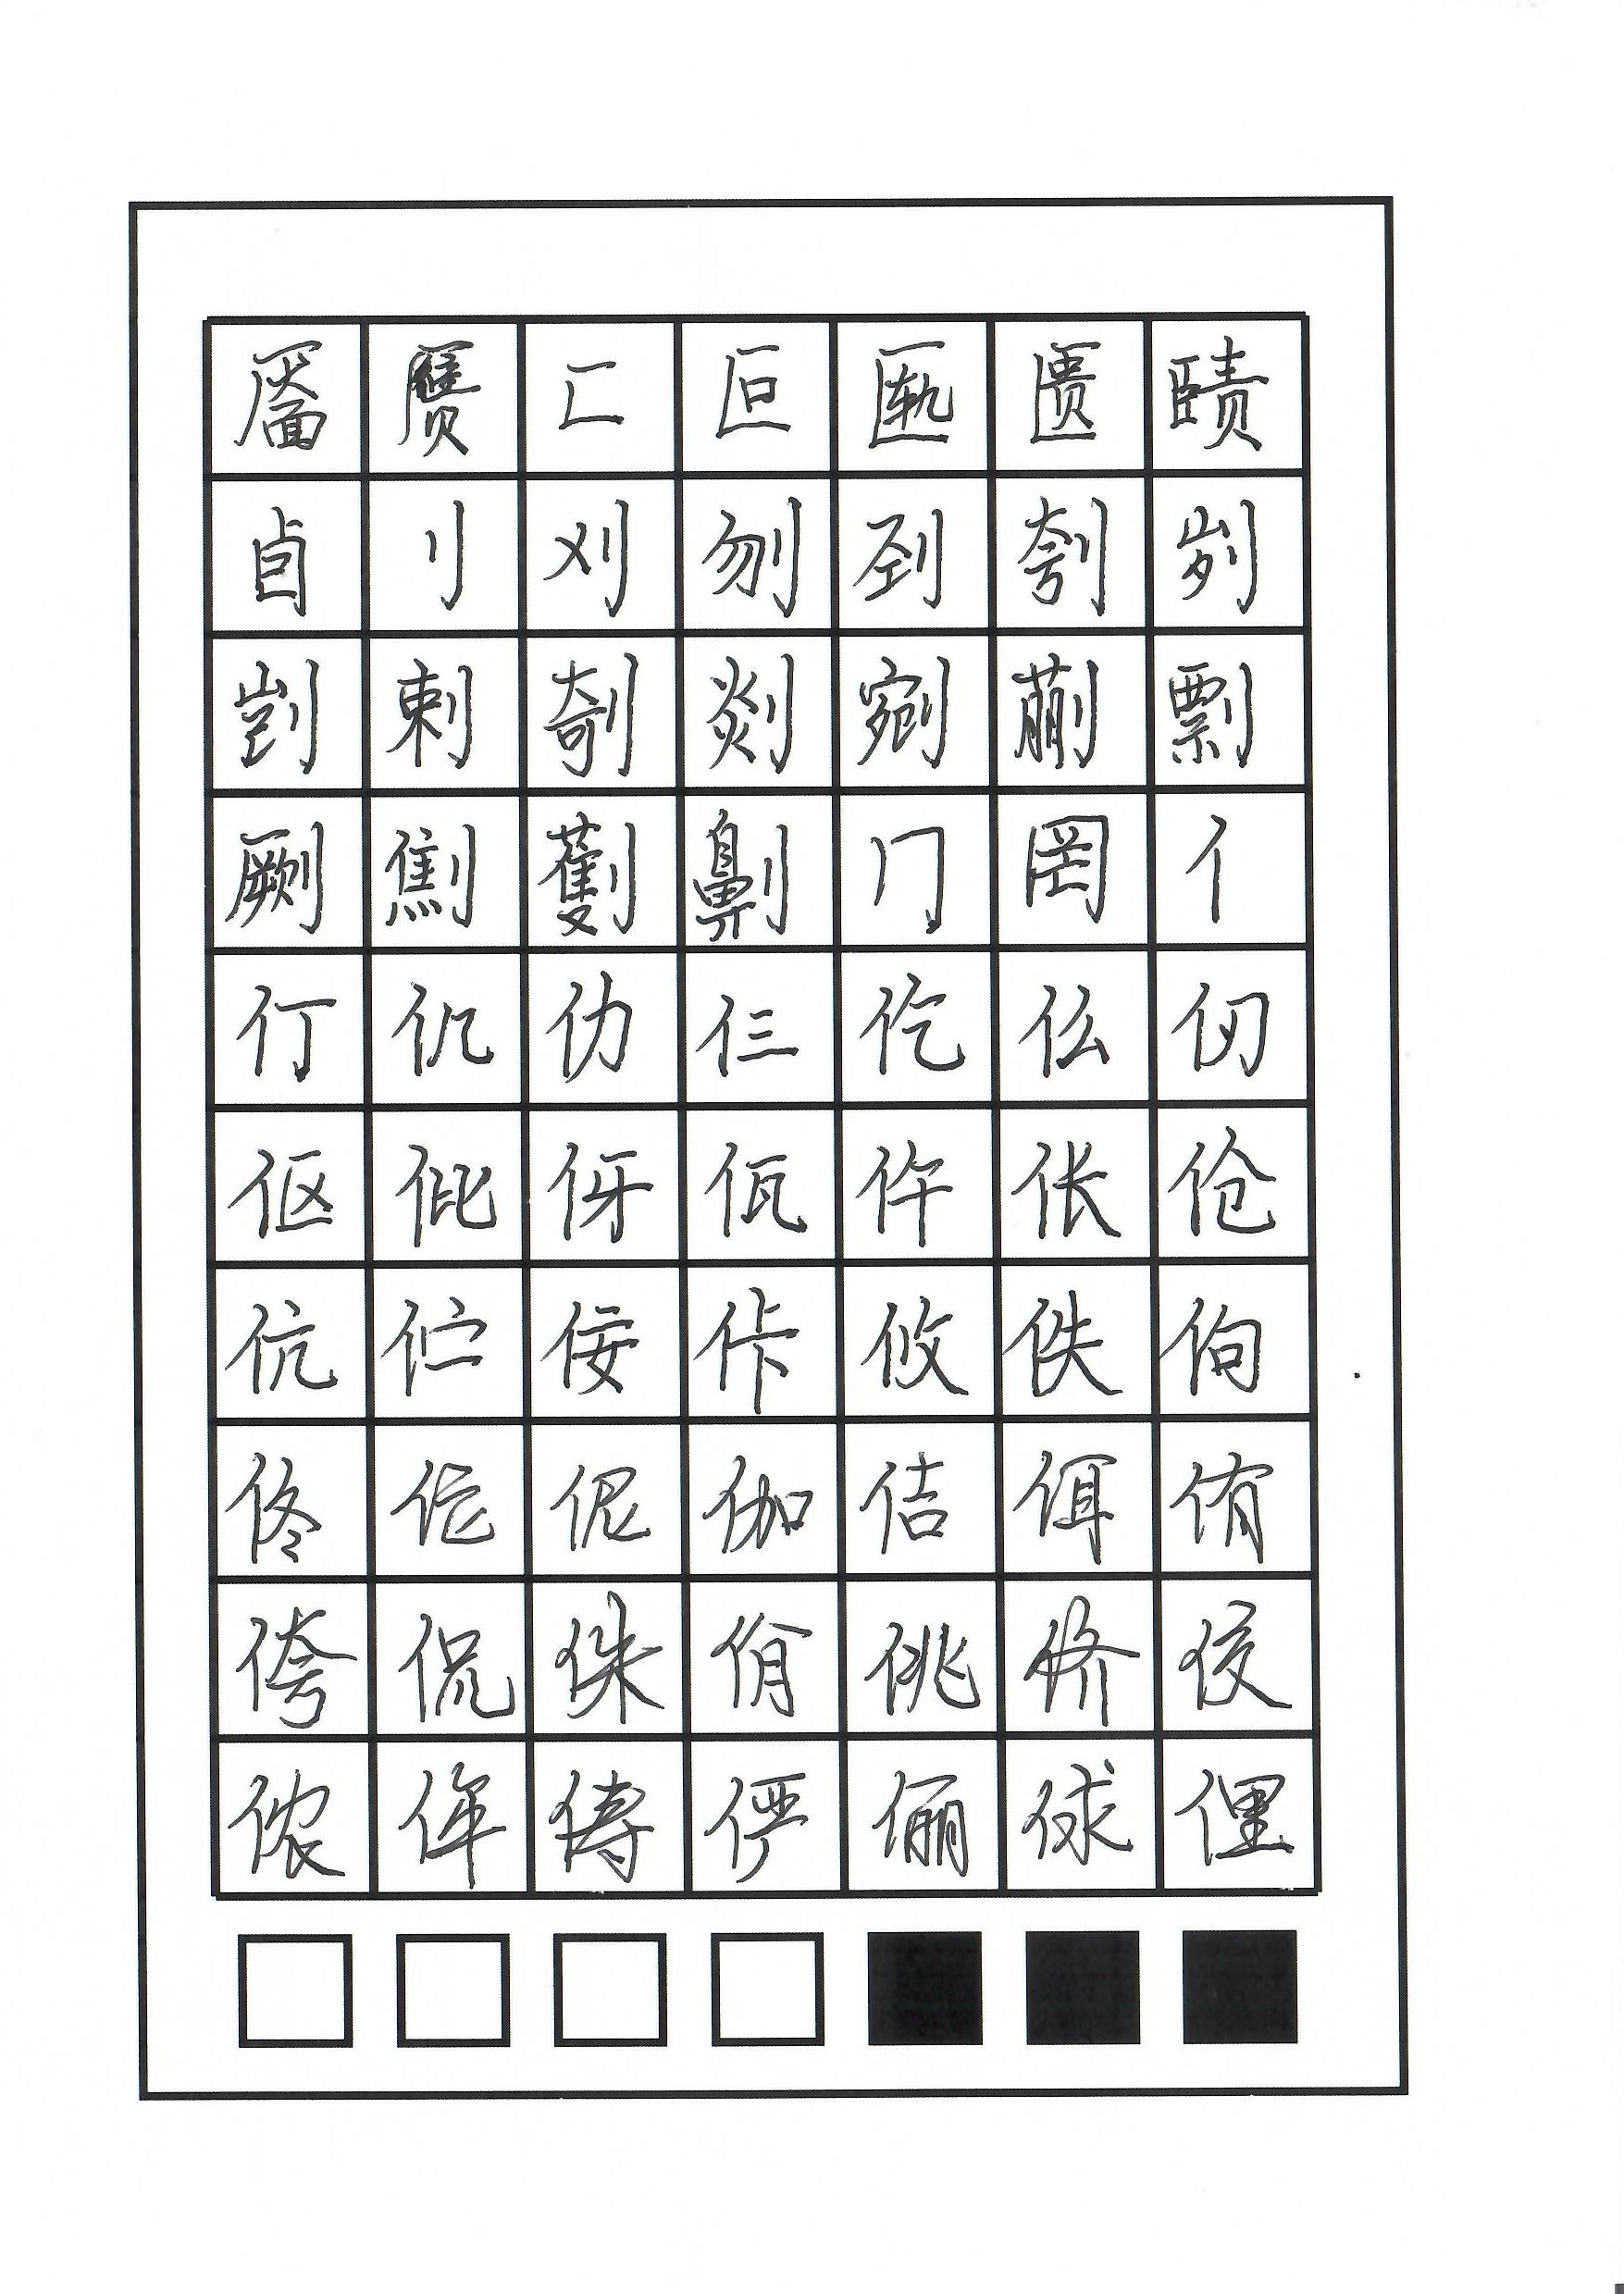 靥赝匚叵匦匮赜
卣刂刈刎刭刳刿
剀剌剞剡剜蒯剽
劂劁劐劓冂罔亻
仃仉仂仨仡仫仞
伛仳伢佤仵伥伧
伉伫佞佧攸佚佝
佟佗伲伽佶佴侑
侉侃侏佾佻侪佼
侬侔俦俨俪俅俚